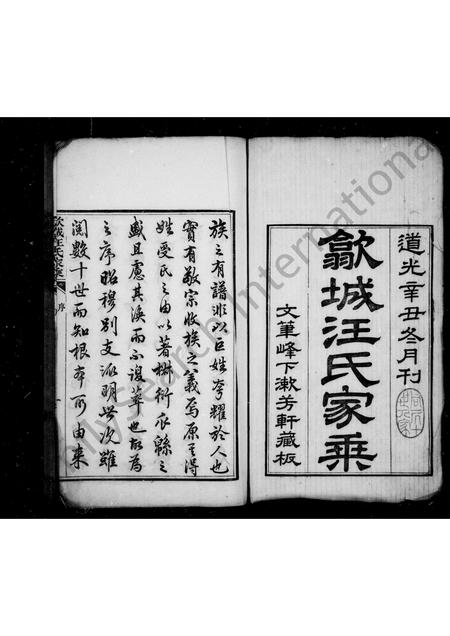 道光辛丑冬月刊
歙城汪氏家乘
文筆峰下漱芳軒藏板
族之有譜非以巨姓夸耀於人也
實有敬宗收族之義焉原其得
姓受氏之由以著椒衍瓜緜之
盛且慮其渙而不復萃也故為
之序昭穆別支派明世次雖
閱數十世而知根本所由来
歙城汪氏家乘 序
ilySearch International